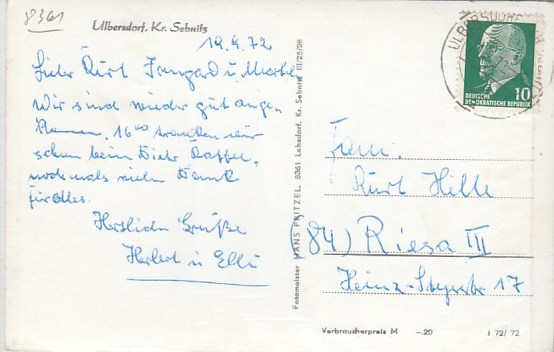 8361
Ulbersdorf, Kr. Sebnitz
12.9.72
Lieber Kurt Irmgard u.
Wir sind wieder gut ange-
kommen, 16⁰⁰ wir
schon beim
nochmals vielen Dank
für alles.
Herzliche Grüße
Herbert u Elli
Fotomeister HANS PRITZEL, 8361 Lohsdorf, Kr. Sebnitz III/25/28
ULBERSDORF
DEUTSCHE
DEMOKRATISCHE REPUBLIK
10
Fam.
Kurt Hille
(84) Riesa III
Heinz-Steyer-Str 17
Verbraucherpreis M -.20
I 72/72